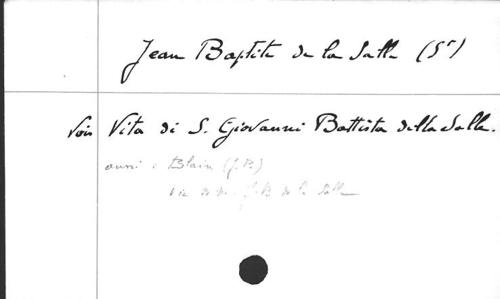 Jean Baptite de la Salle (St)
Vois Vita di S. Giovanni Battista della Salle.
aussi : Blain (J.B)
Vie de M. J.B de la Salle